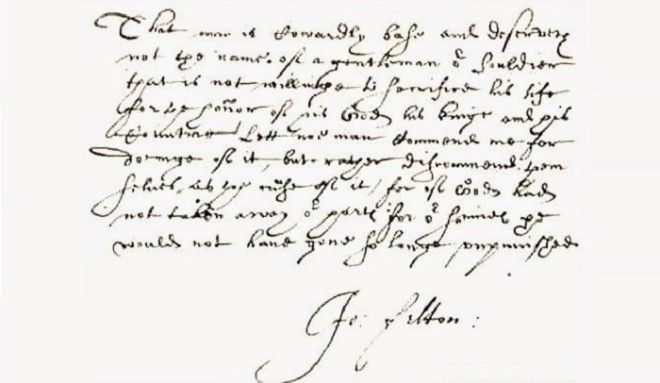 That man is Cowardly base and deserveth
not the name of a gentleman oʳ Souldier
that is not willinge to sacrifice his life
for the honoʳ of his God his kinge and his
Countrie Lett noe man Commend me for
doeinge of it, but rather discommend them
selves, as the cause of it, for if God had
not taken away oʳ harts for oʳ sinnes he
would not have gone so longe unpunished
Jo: Felton: